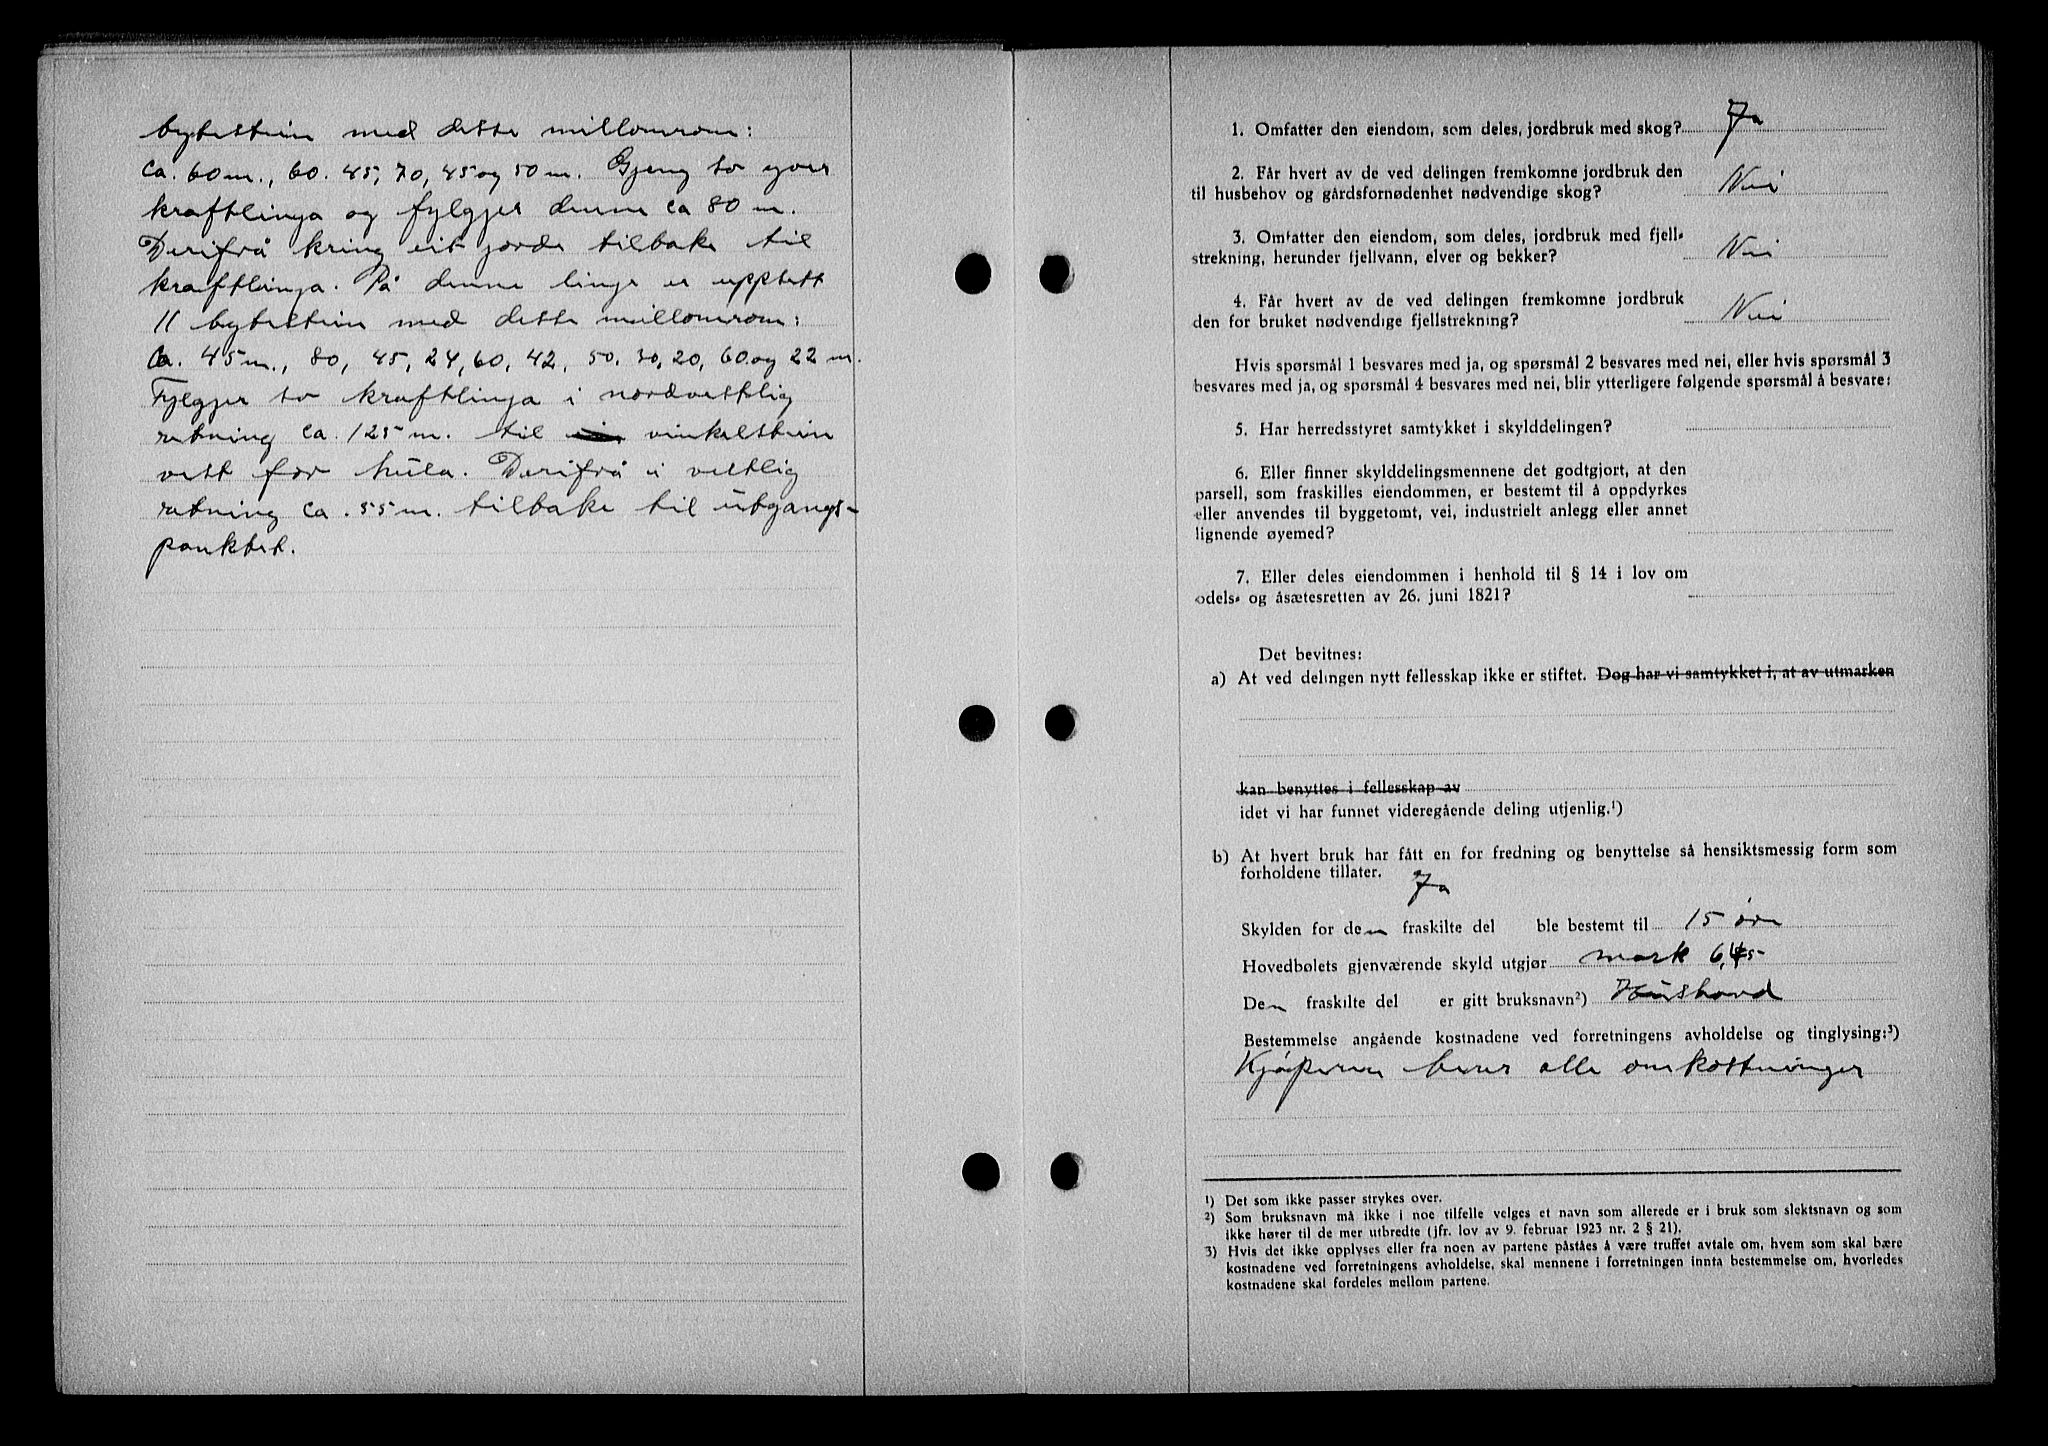 bytestein med dette millomrom:
ca. 60 m., 60. 45, 70, 45 og 50 m. Gjeng so yver
kraftlinja og fylgjer denne ca 80 m.
Derifrå kring eit jorde tilbake til
kraftlinja. På denne linja er uppsett
11 bytestein med dette millomrom:
Ca. 45 m., 80, 45, 24, 60, 42, 50. 30, 20, 60 og 22 m.
Fylgjer so kraftlinja i nordvestlig
retning ca. 125 m. til vinkelstein
vest for hula. Derifrå i vestlig
retning ca. 55 m. tilbake til utgangs-
punktet.
1. Omfatter den eiendom, som deles, jordbruk med skog? Ja
2. Får hvert av de ved delingen fremkomne jordbruk den
til husbehov og gårdsfornødenhet nødvendige skog? Nei
3. Omfatter den eiendom, som deles, jordbruk med fjell-
strekning, herunder fjellvann, elver og bekker? Nei
4. Får hvert av de ved delingen fremkomne jordbruk
den for bruket nødvendige fjellstrekning? Nei
Hvis spørsmål 1 besvares med ja, og spørsmål 2 besvares med nei, eller hvis spørsmål 3
besvares med ja, og spørsmål 4 besvares med nei, blir ytterligere følgende spørsmål å besvare:
5. Har herredsstyret samtykket i skylddelingen?
6. Eller finner skylddelingsmennene det godtgjort, at den
parsell, som fraskilles eiendommen, er bestemt til å oppdyrkes
eller anvendes til byggetomt, vei, industrielt anlegg eller annet
lignende øyemed?
7. Eller deles eiendommen i henhold til § 14 i lov om
odels- og åsætesretten av 26. juni 1821?
Det bevitnes:
a) At ved delingen nytt fellesskap ikke er stiftet. Dog har vi samtykket i, at av utmarken
kan benyttes i fellesskap av
idet vi har funnet videregående deling utjenlig.¹)
b) At hvert bruk har fått en for fredning og benyttelse så hensiktsmessig form som
forholdene tillater. Ja
Skylden for den fraskilte del ble bestemt til 15 øre
Hovedbølets gjenværende skyld utgjør mark 6,45
Den fraskilte del er gitt bruksnavn²)
Bestemmelse angående kostnadene ved forretningens avholdelse og tinglysing:³)
Kjøperen berer alle omkostninger
¹) Det som ikke passer strykes over.
²) Som bruksnavn må ikke i noe tilfelle velges et navn som allerede er i bruk som slektsnavn og som
ikke hører til de mer utbredte (jfr. lov av 9. februar 1923 nr. 2 § 21).
3) Hvis det ikke opplyses eller fra noen av partene påståes å være truffet avtale om, hvem som skal bære
kostnadene ved forretningens avholdelse, skal mennene i forretningen innta bestemmelse om, hvorledes
kostnadene skal fordeles mellom partene.